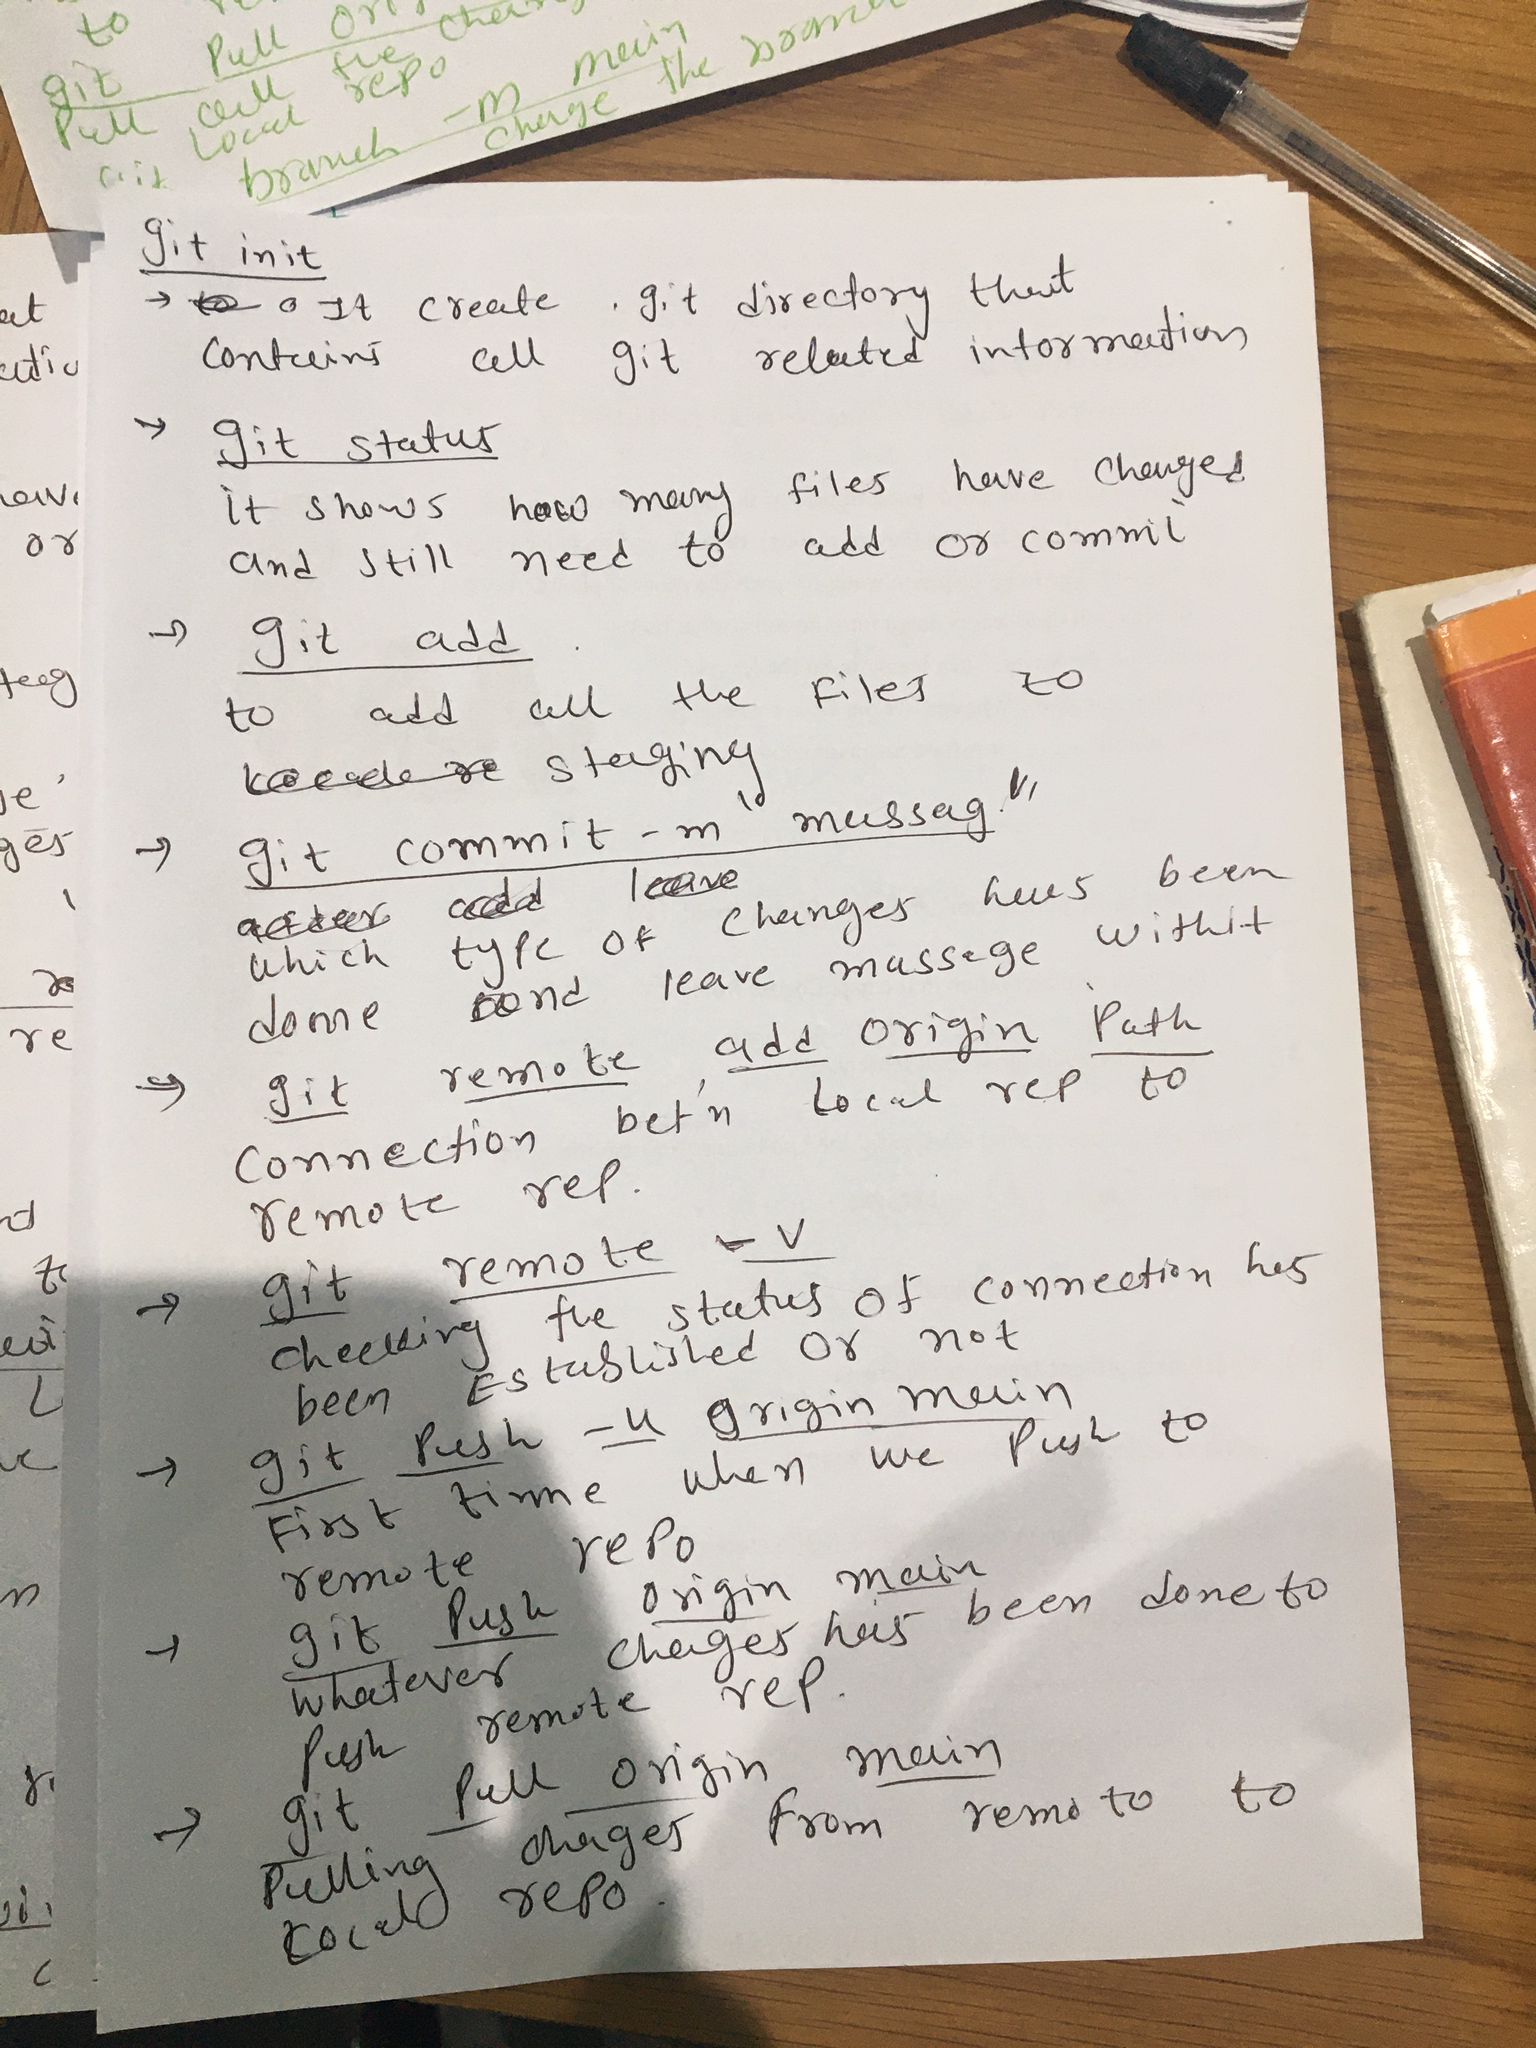 to
git Pull
Pull all the
Local repo
git branch -m main
change the
git init
→ o It create .git directory that
contains all git related information
→ git status
it shows how many files have changed
and still need to add or commit
→ git add .
to add all the Files to
staging
→ git commit -m "mussag."
which type of changes has been
donne and leave mussage withit
→ git remote add origin Path
Connection bet'n Local rep to
remote rep.
→ git remote -v
checking the status of connection has
been Established or not
→ git Push -u origin main
First time when we Push to
remote repo
→ git Push origin main
whatever chages has been done to
Push remote rep.
→ git Pull origin main
Pulling chages From remoto to
Local repo.